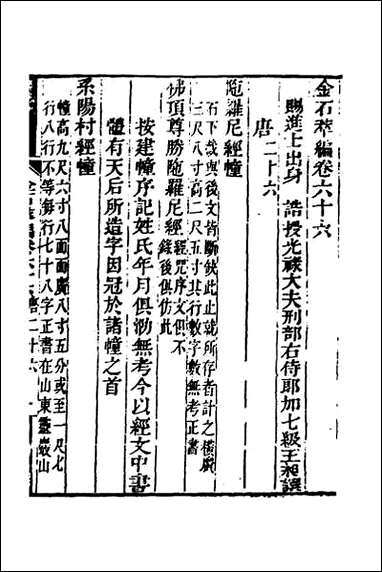 金石萃編卷六十六
賜進士出身 誥授光祿大夫刑部右侍郎加七級王昶譔
唐二十六
陁羅尼經幢
石下截與後文皆斷缺此止就所存者計之橫廣
三尺八寸高二尺五寸行數字數無考正書
佛頂尊勝陁羅尼經 經咒序文俱不
錄後俱仿此
按建幢序記姓氏年月俱泐無考今以經文中書
體有天后所造字因冠於諸幢之首
系陽村經幢
幢高九尺六寸八面面廣八寸五分或至一尺七
行八行不等每行七十八字正書在山東靈巖山